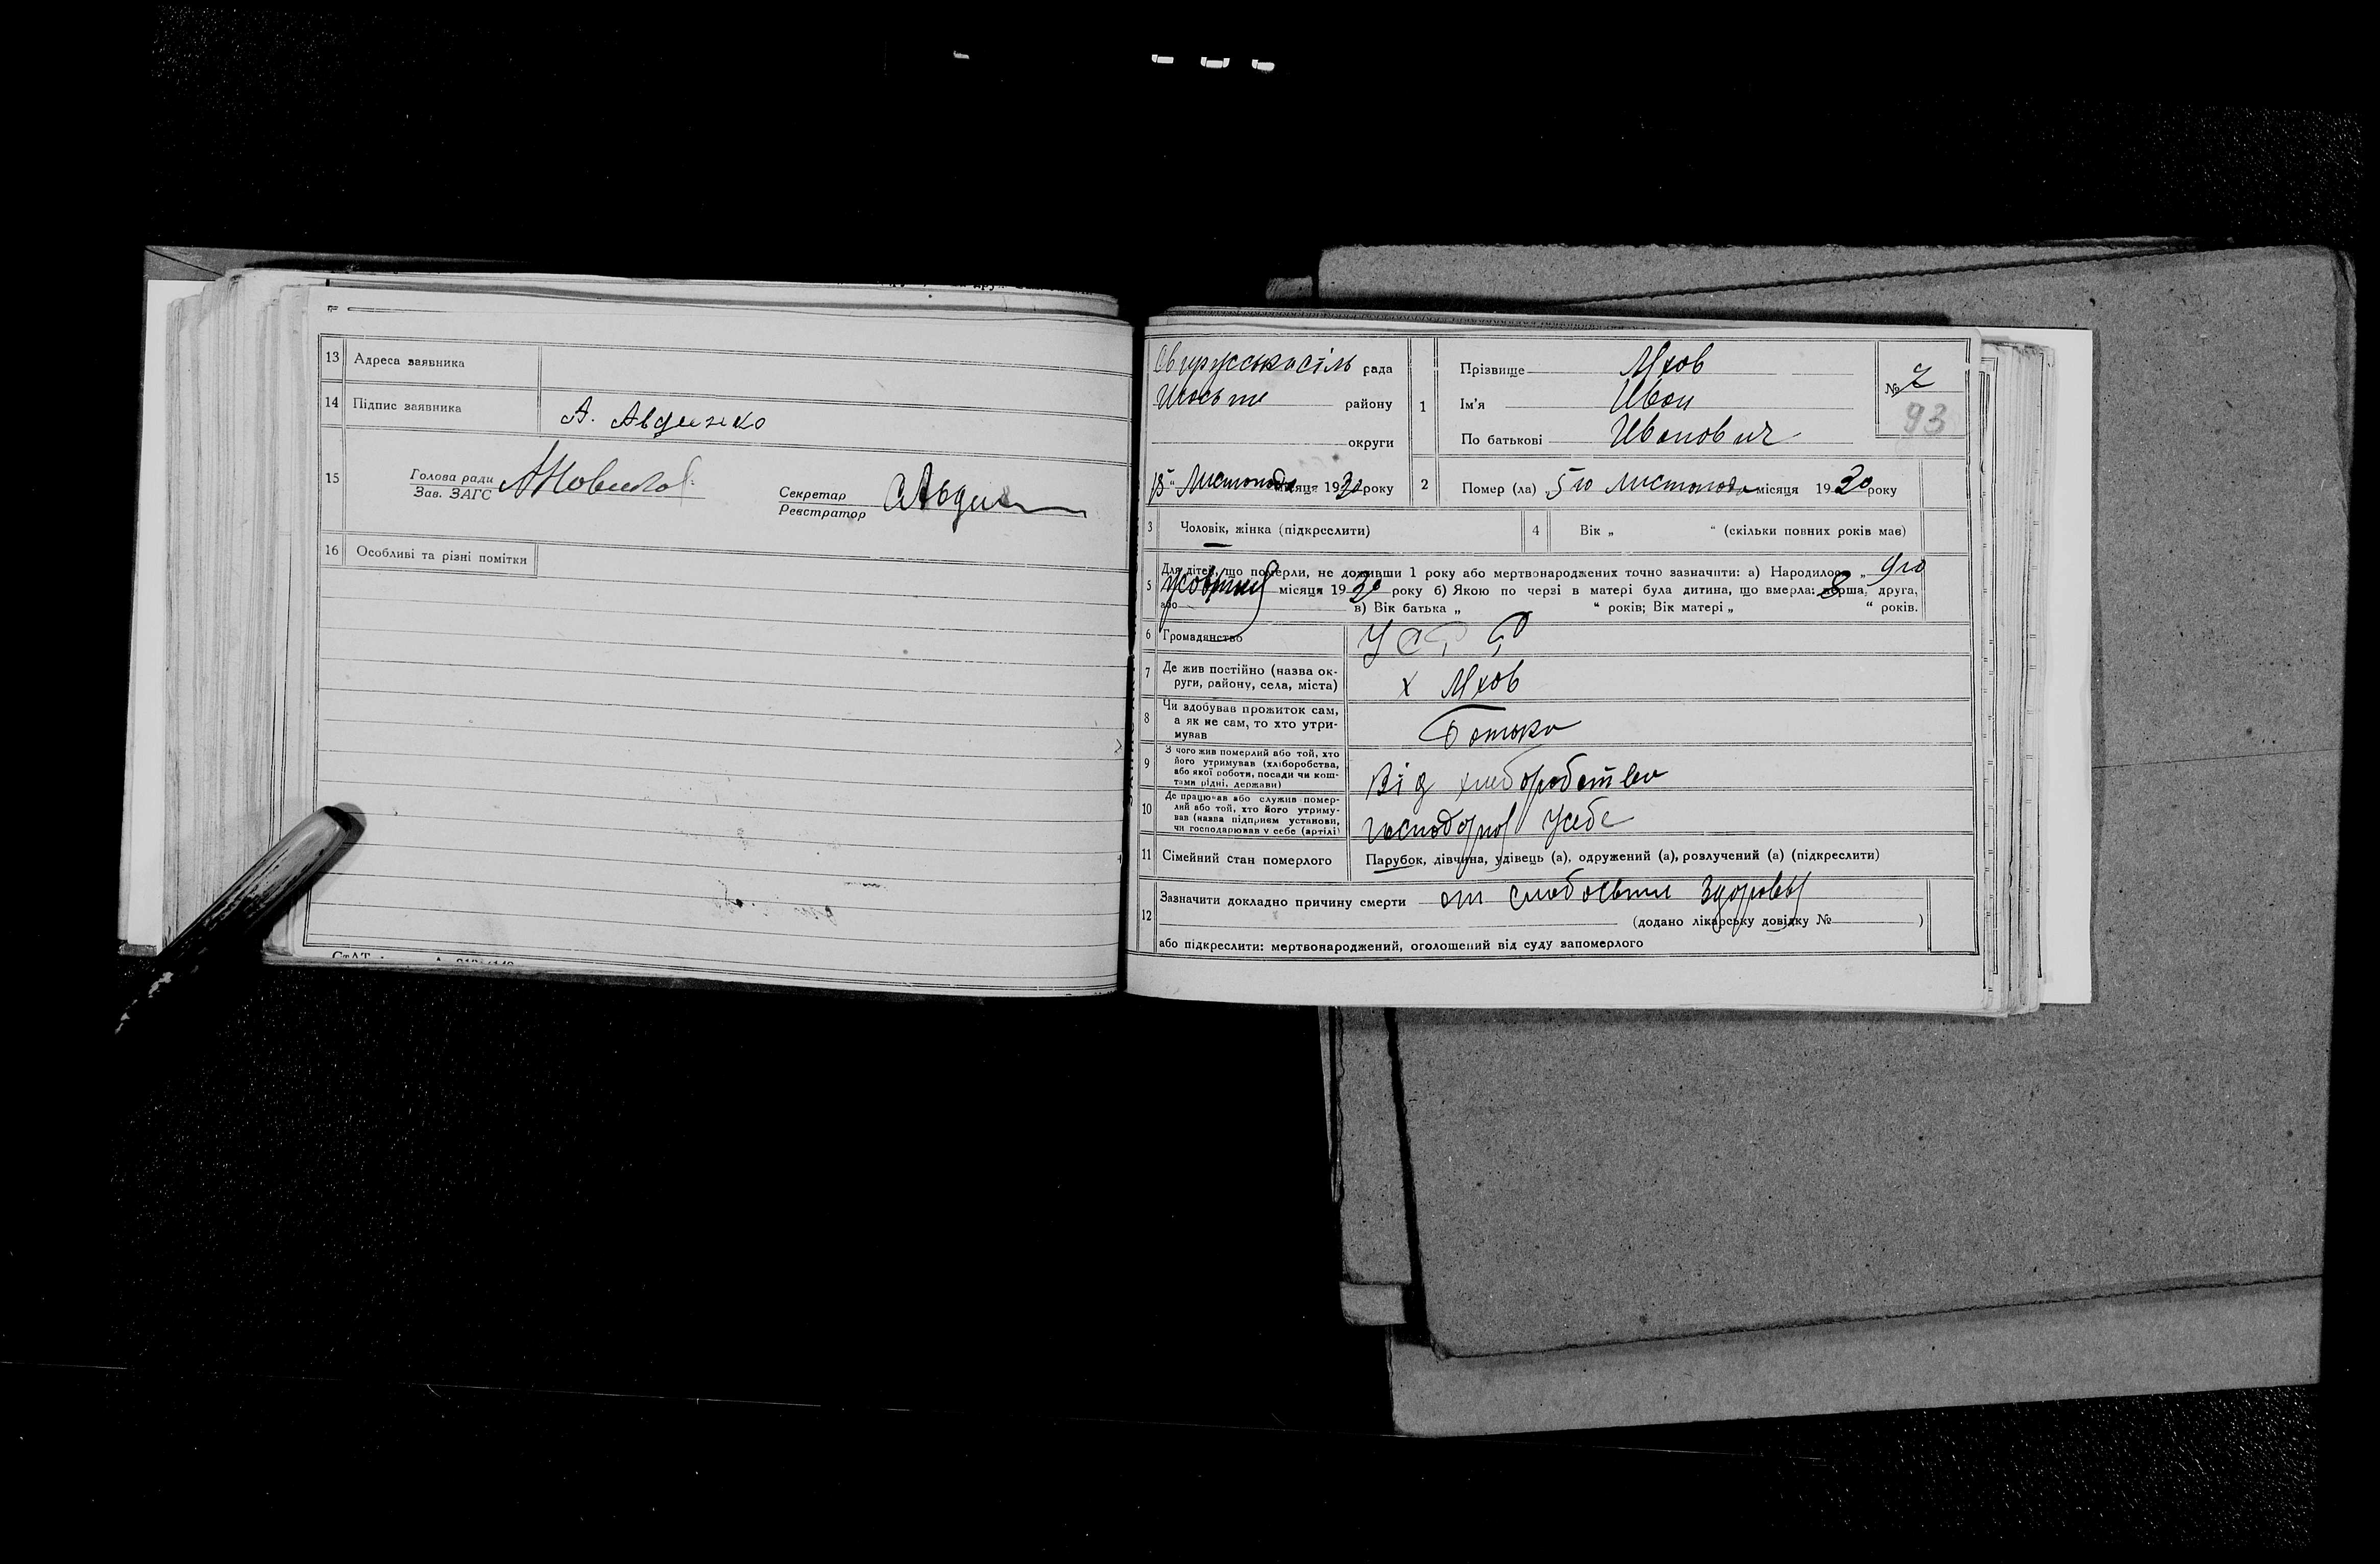 13 Адреса заявника
14 Підпис заявника А. Авдиенко
15 Голова ради
Зав. ЗАГС
Секретар
Реєстратор
16 Особливі та різні помітки
рада
району
округи
Листопада місяця 1930 року
№ 7
93
1 Прізвище Мхов
Ім'я Иван
По батькові Иванович
2 Помер (ла) 5го Листопада місяця 1930 року
3 Чоловік, жінка (підкреслити)
4 Вік „ “ (скільки повних років має)
5 Для дітей, що померли, не доживши 1 року або мертвонароджених точно зазначити: а) Народилося „ 9го
Жовтня місяця 1930 року б) Якою по черзі в матері була дитина, що вмерла: перша, друга, 8
або в) Вік батька „ “ років; Вік матері „ “ років.
6 Громадянство УСРР
7 Де жив постійно (назва ок-
руги, району, села, міста) х Мхов
8 Чи здобував прожиток сам,
а як не сам, то хто утри-
мував Батько
9 З чого жив померлий або той, хто
його утримував (хліборобства,
або якої роботи, посади чи кош-
тами рідні, держави) Від хлеборобства
10 Де працював або служив помер-
лий або той, хто його утриму-
вав (назва підприєм установи,
чи господарював у себе (артілі) господарюв усебе
11 Сімейний стан померлого Парубок, дівчина, удівець (а), одружений (а), розлучений (а) (підкреслити)
12 Зазначити докладно причину смерти от слабосьти здоровья
(додано лікарську довідку № )
або підкреслити: мертвонароджений, оголошений від суду запомерлого